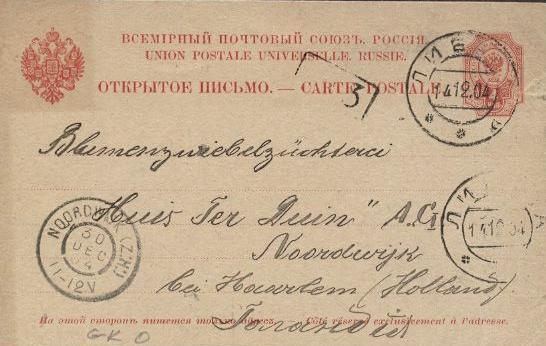 ВСЕМІРНЫЙ ПОЧТОВЫЙ СОЮЗЪ. РОССІЯ
UNION POSTALE UNIVERSELLE. RUSSIE.
ОТКРЫТОЕ ПИСЬМО. — CARTE POSTALE
3
14 12.04
Blumenzwiebelzüchterei
"Huis Ter Duin" A.G.
Noordwijk
bei Haarlem (Holland)
NOORDWIJK
30
DEC
04
11-12V
14 12.04
На этой сторонѣ пишется только адресъ. Côté réservé exclusivement à l'adresse.
GK 0